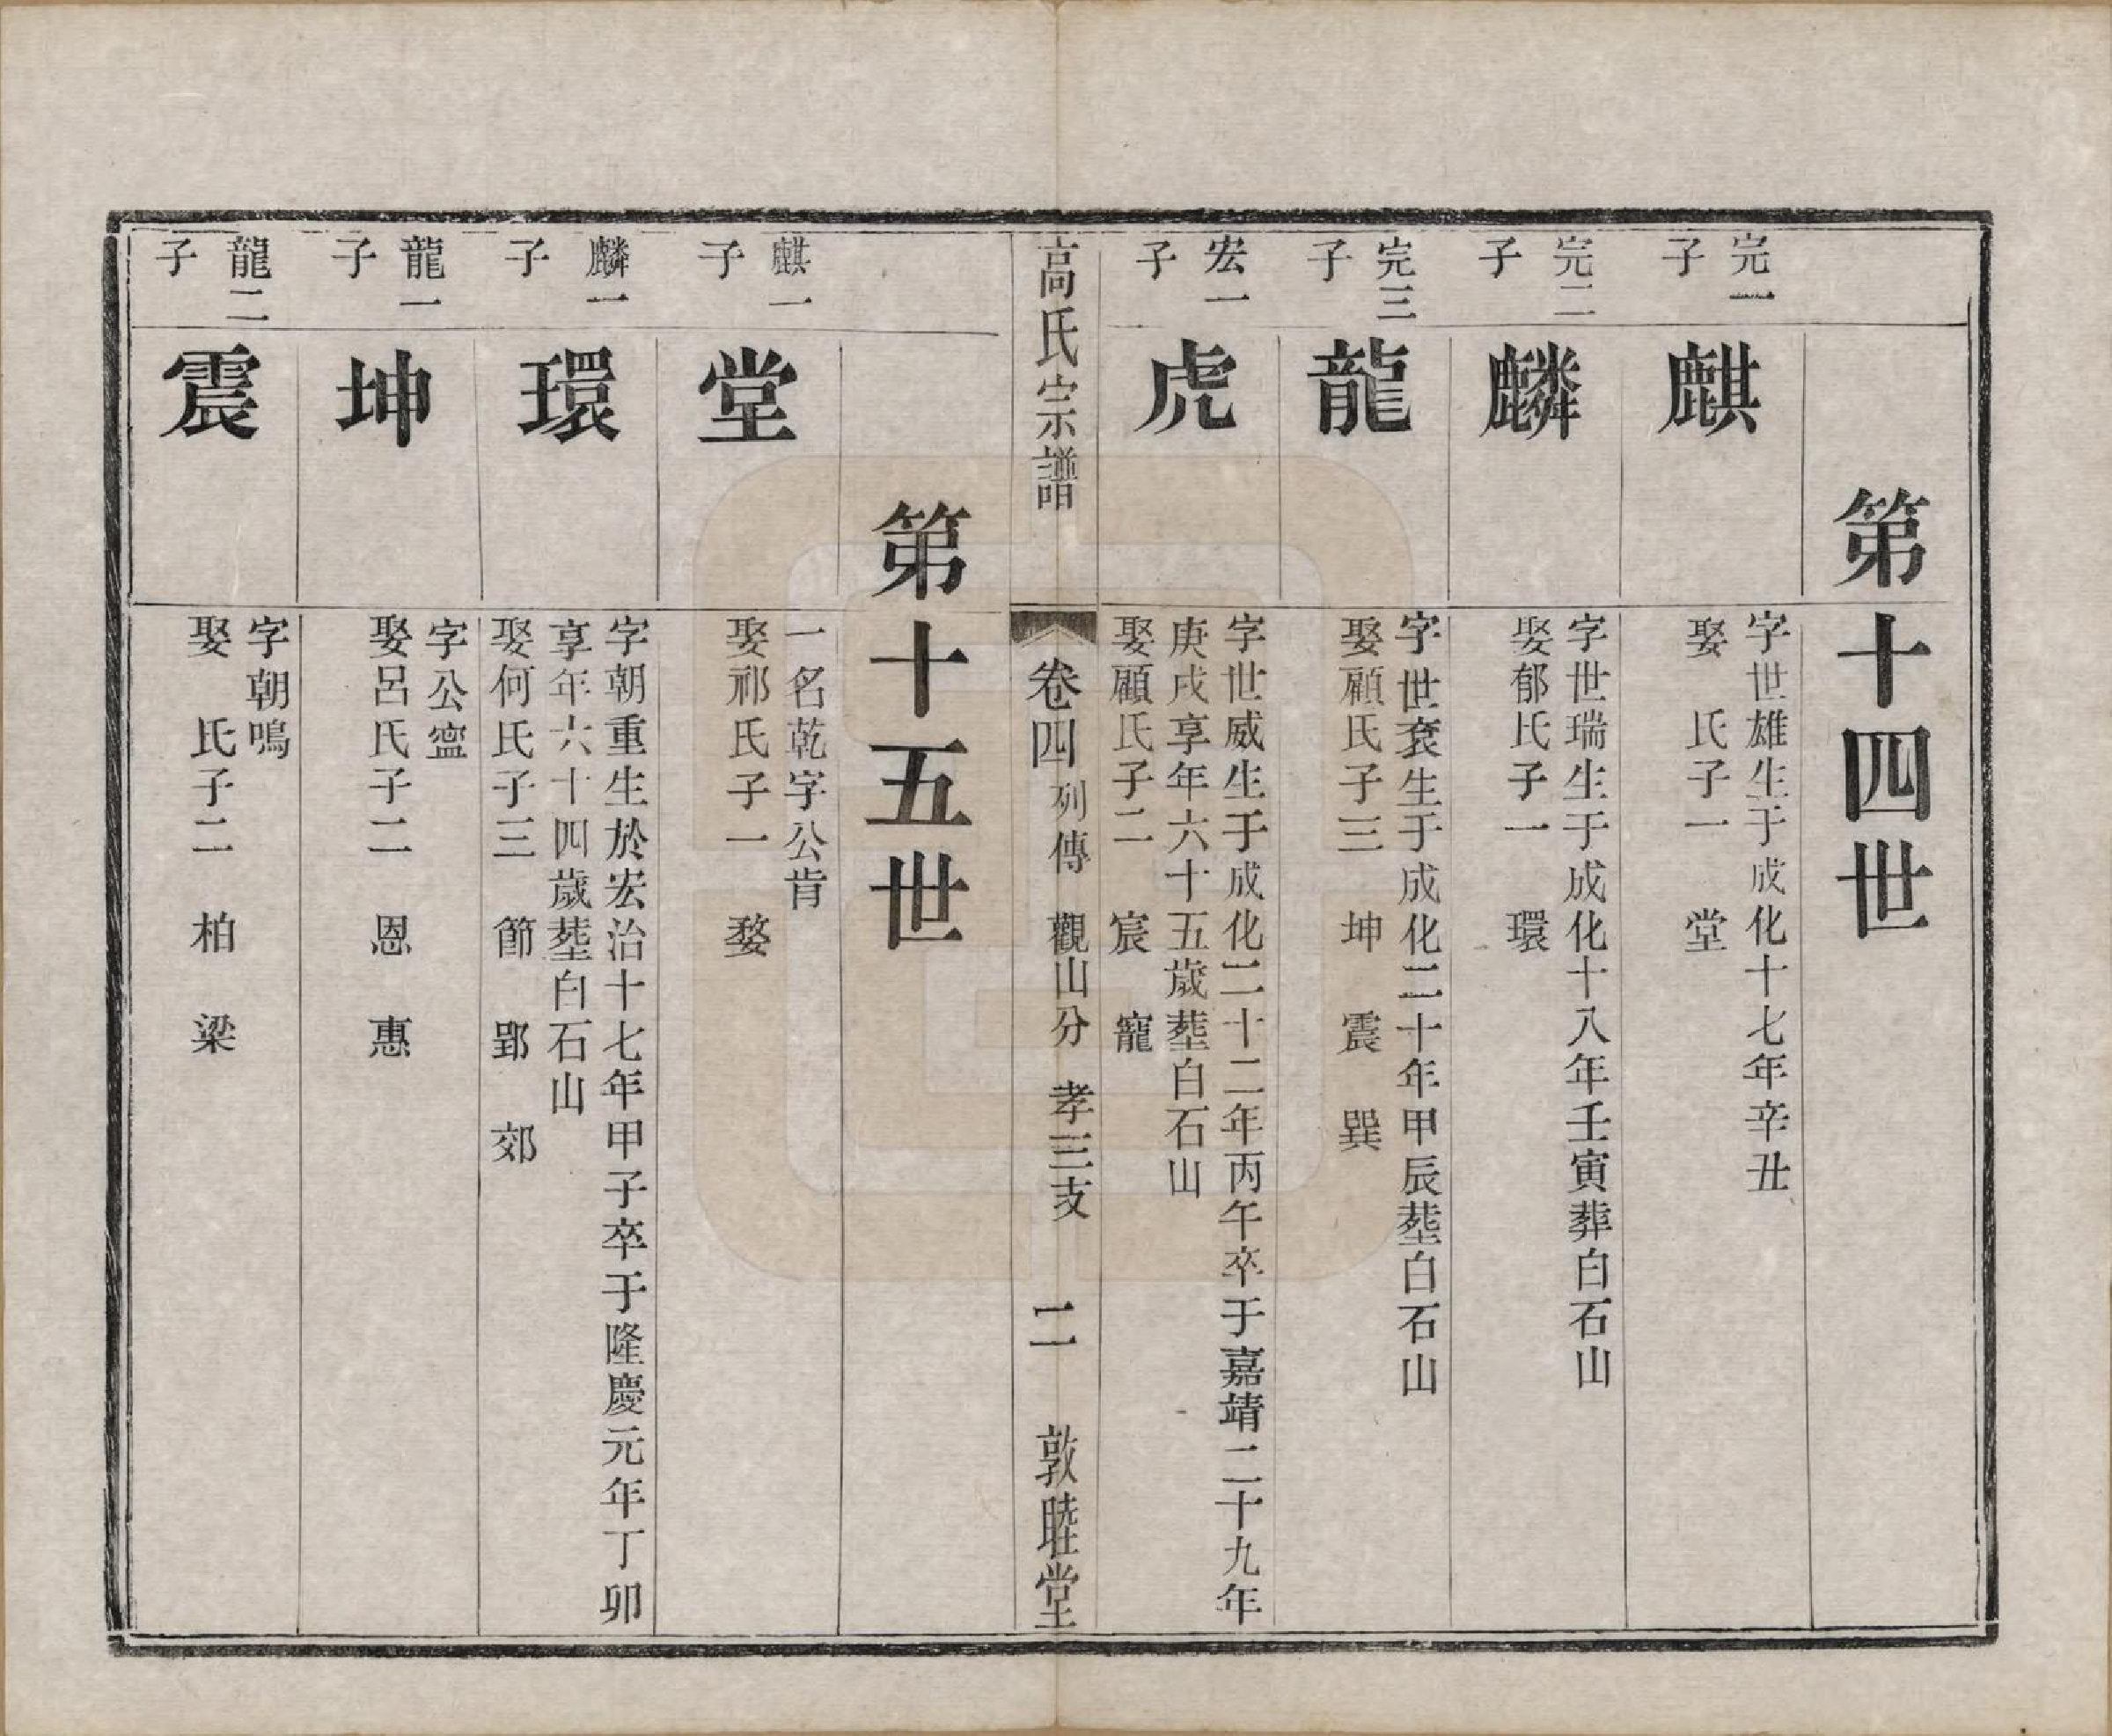 第十四世
完一
子
麒
字世雄生于成化十七年辛丑
娶　氏子一　堂
完二
子
麟
字世瑞生于成化十八年壬寅葬白石山
娶郁氏子一　環
完三
子
龍
字世袞生于成化二十年甲辰塟白石山
娶顧氏子三　坤　震　巽
宏一
子
虎
字世威生于成化二十二年丙午卒于嘉靖二十九年
庚戌享年六十五歲塟白石山
娶顧氏子二　宸　寵
高氏宗譜　卷四　列傳　觀山分　孝三支　二　敦睦堂
第十五世
麒一
子
堂
一名乾字公肯
娶祁氏子一　婺
麟一
子
環
字朝重生於宏治十七年甲子卒于隆慶元年丁卯
享年六十四歲塟白石山
娶何氏子三　節　郢　郊
龍一
子
坤
字公寍
娶呂氏子二　恩　惠
龍二
子
震
字朝鳴
娶　氏子二　柏　梁